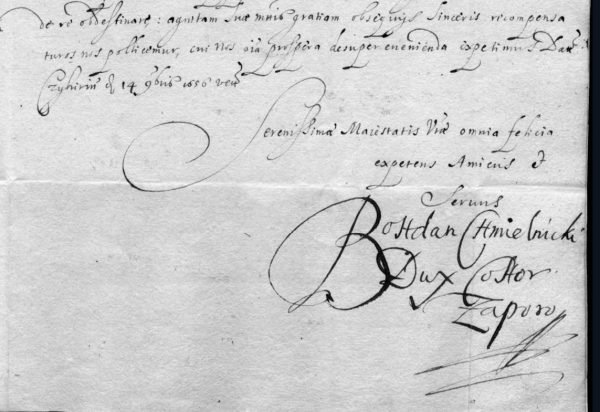 de re oldestinare: agnitam Suæ mntis gratiam obsequijs sinceris recompensa
turos nos pollicemur, cui nos oia prospera desuper evenienda expetimus Dat
Czyhirin d 14 9bris 1656 vet
Serenissimæ Maiestatis Vræ omnia felicia
expetens Amicus &
Servus
Bohdan Chmielnicki
Dux Cohor.
Zaporo